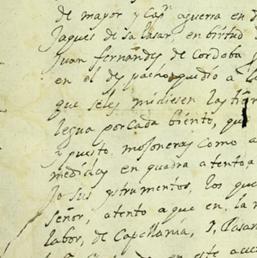 de mayor y Capn aguerra en d
Jaques de salasar en birtud d
Juan fernandes de Cordoba
en el des pacho pudio a l
que seles midiesen las tierr
legua por cada biento, que
apuesto, mosoneras como a
medidas en quadra atento a
sus ynstrumentos, los que
señor, atento a que en la m
labor, de Capellania, y Casa
en este